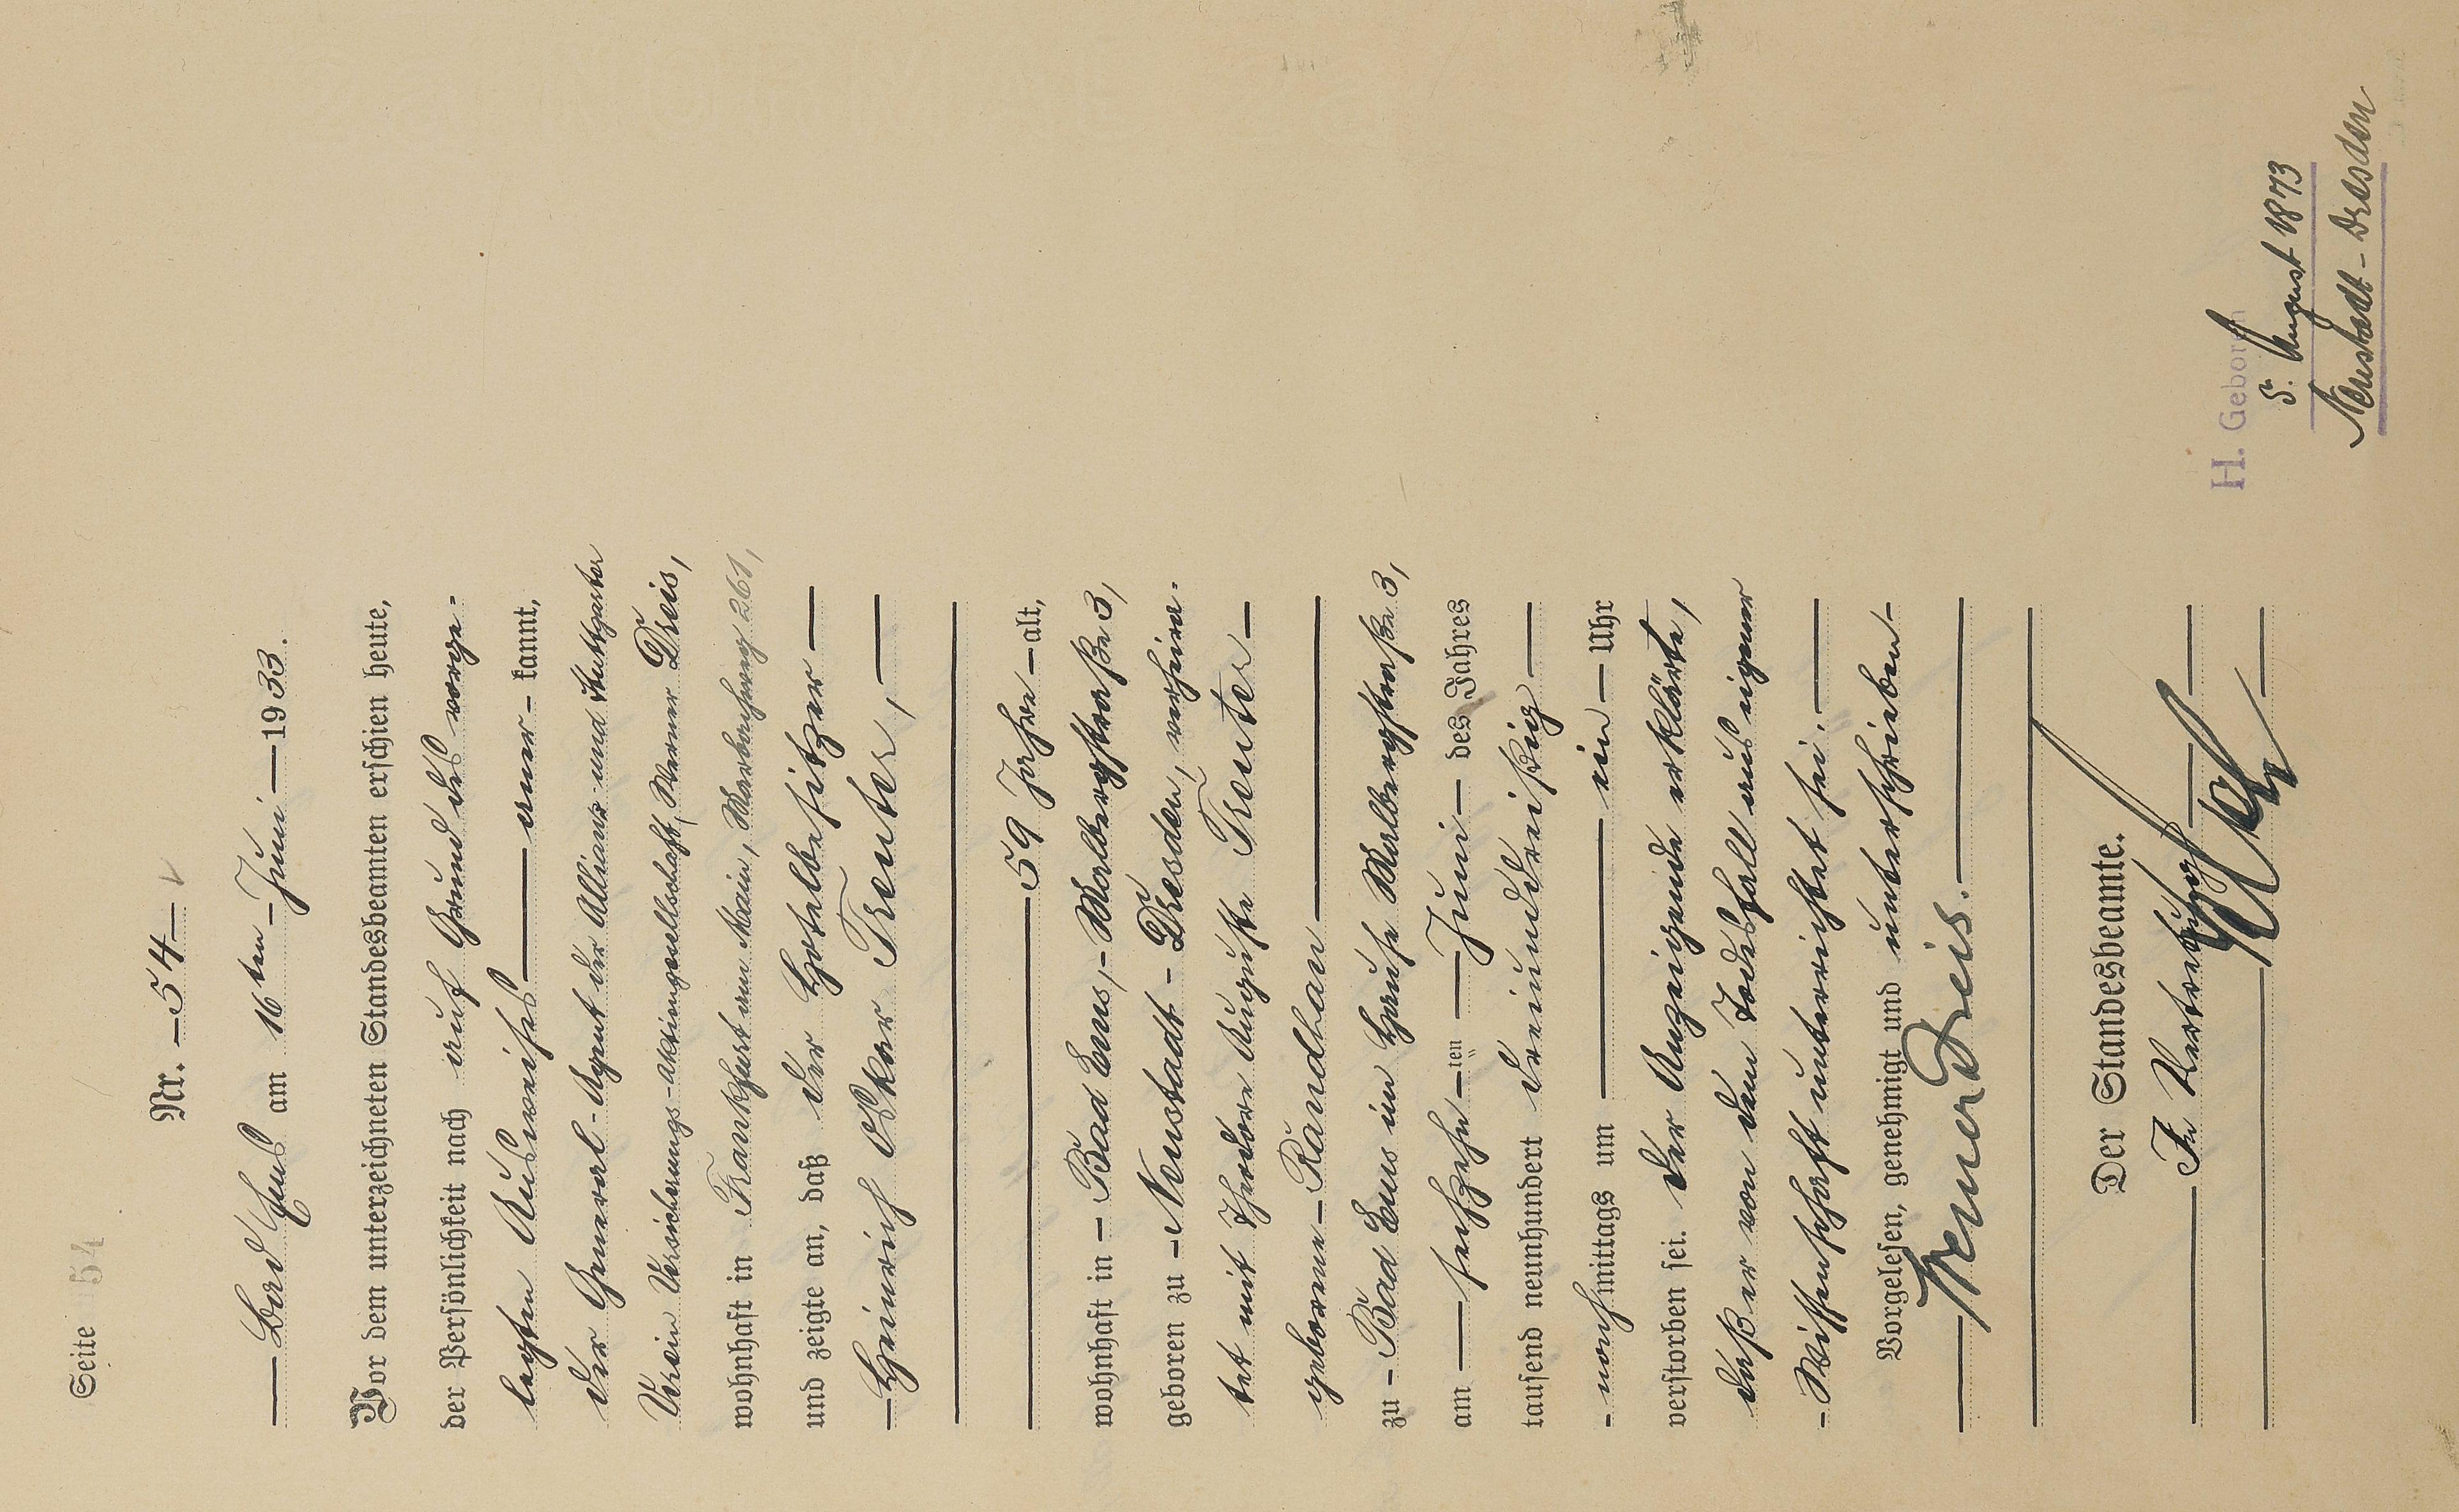 Seite 54
Nr. 54
Bad Ems am 16ten Juni 1933.
Vor dem unterzeichneten Standesbeamten erschien heute,
der Persönlichkeit nach auf Grund des vorge-
legten Ausweises aner- kannt,
der General-Agent der Allianz- und Stuttgarter
Verein Versicherungs-Aktiengesellschaft, Werner Dreis,
wohnhaft in Frankfurt am Main, 261,
und zeigte an, daß der Hotelbesitzer
Heinrich Oskar Treuter,
59 Jahre alt,
wohnhaft in Bad Ems, Malbergstraße 3,
geboren zu Neustadt-Dresden, verheira-
tet mit Theodore Auguste Treuter
geborene Randhan
zu Bad Ems im Hause Malbergstraße 3,
am sechzehn ten Juni des Jahres
tausend neunhundert dreiunddreißig
nachmittags um ein Uhr
verstorben sei. Der Anzeigende erklärte,
daß er von dem Todesfall aus eigener
Wissenschaft unterrichtet sei.
Vorgelesen, genehmigt und unterschrieben
Werner Dreis.
Der Standesbeamte.
In Vertretung
H. Geboren
5. August 1873
Neustadt-Dresden